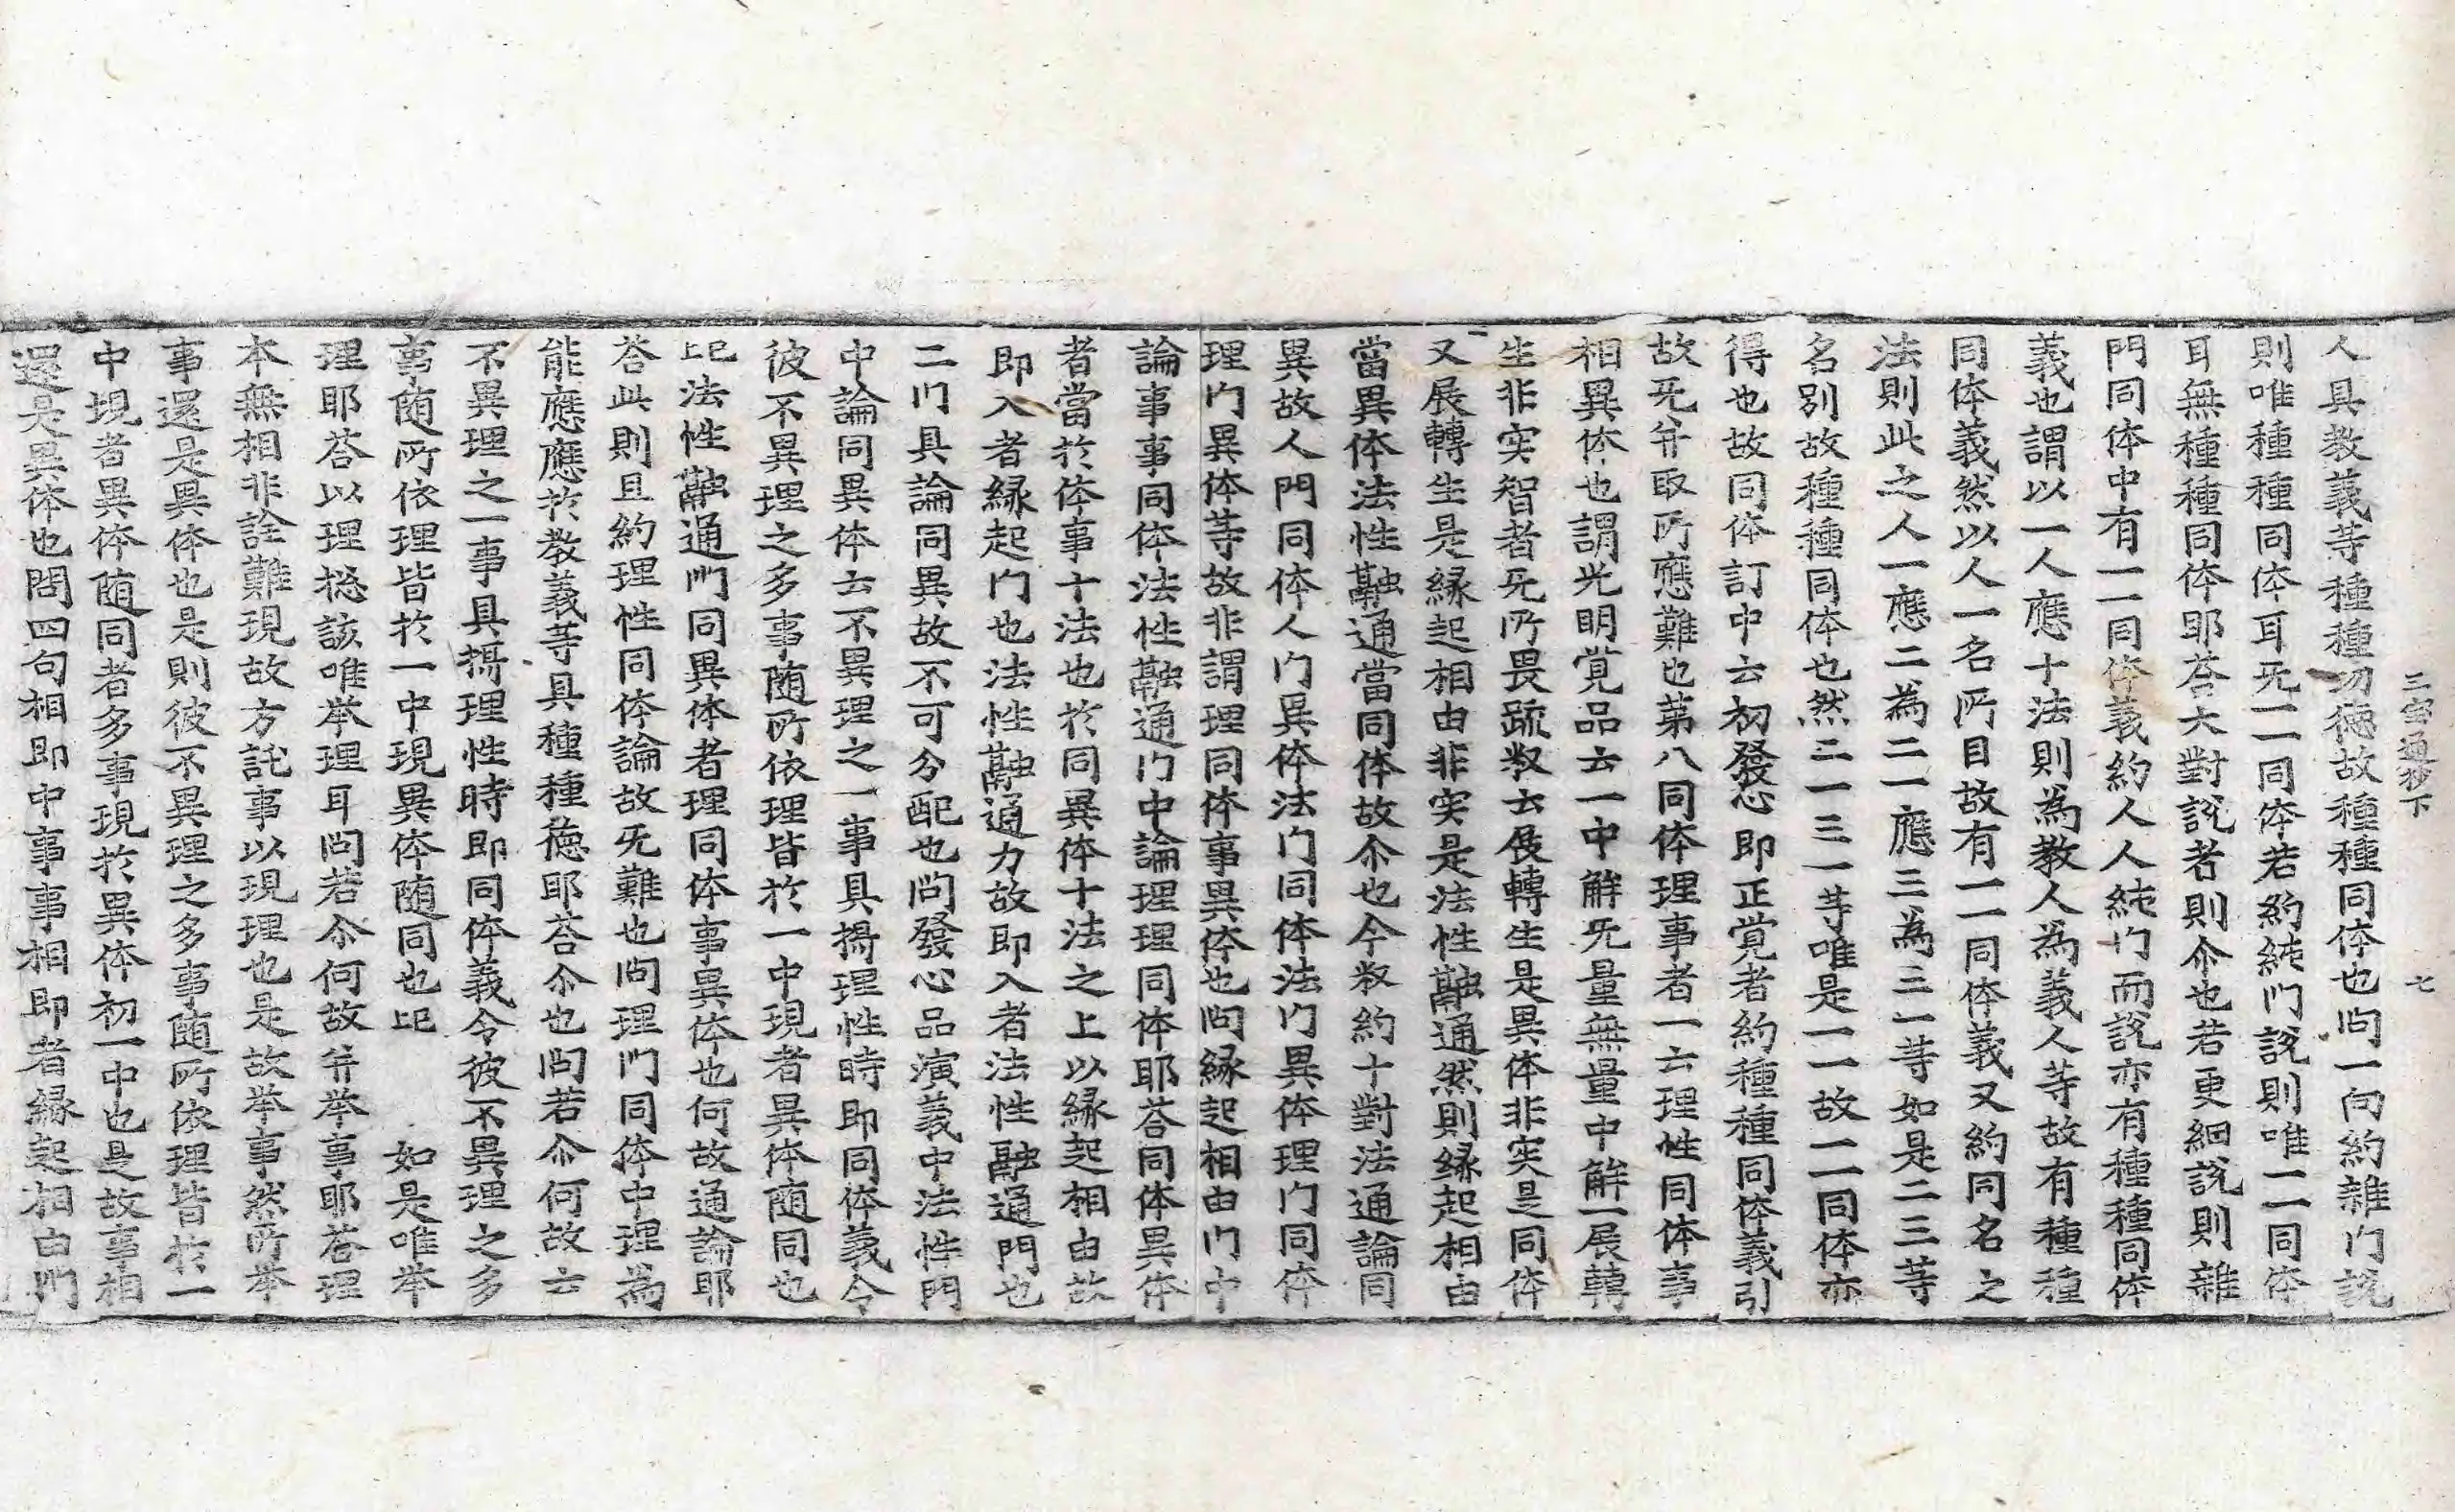 三寶通抄下　七
人具教義等種種功徳故種種同体也问一向約雜门説
則唯種種同体耳旡一一同体若約純门説則唯一一同体
耳無種種同体耶荅大對説者則尒也若更細説則雜
門同体中有一一同体義約人人純门而説亦有種種同体
義也謂以一人應十法則為教人為義人等故有種種
同体義然以人一名所目故有一一同体義又約同名之
法則此之人一應二為二一應三為三一等如是二三等
名別故種種同体也然二一三一等唯是一一故一一同体亦
得也故同体訂中云初發心即正覚者約種種同体義引
故旡弁取所應難也第八同体理事者一云理性同体事
相異体也謂光明覚品云一中觧旡量無量中觧一展轉
生非実智者旡所畏疏釈云展轉生是異体非実是同体
又展轉生是縁起相由非実是法性融通然則縁起相由
當異体法性融通當同体故尒也今釈約十對法通論同
異故人門同体人门異体法门同体法门異体理门同体
理门異体等故非謂理同体事異体也问縁起相由门中
論事事同体法性融通门中論理理同体耶荅同体異体
者當於体事十法也於同異体十法之上以縁起相由故
即入者縁起门也法性融通力故即入者法性融通門也
二门具論同異故不可分配也问發心品演義中法性門
中論同異体云不異理之一事具攝理性時即同体義令
彼不異理之多事随所依理皆於一中現者異体随同也
记法性融通门同異体者理同体事異体也何故通論耶
荅此則且約理性同体論故旡難也问理门同体中理為
能應應於教義等具種種徳耶荅尒也问若尒何故云
不異理之一事具攝理性時即同体義令彼不異理之多
事随所依理皆於一中現異体随同也记　如是唯举
理耶荅以理捴該唯举理耳问若尒何故弁举事耶荅理
本無相非詮難現故方託事以現理也是故举事然所举
事還是異体也是則彼不異理之多事随所依理皆於一
中現者異体随同者多事現於異体初一中也是故事相
還是異体也問四句相即中事事相即者縁起相由门